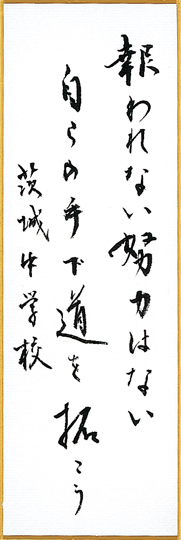 報われない努力はない
自らの手で道を拓こう
茨城中学校